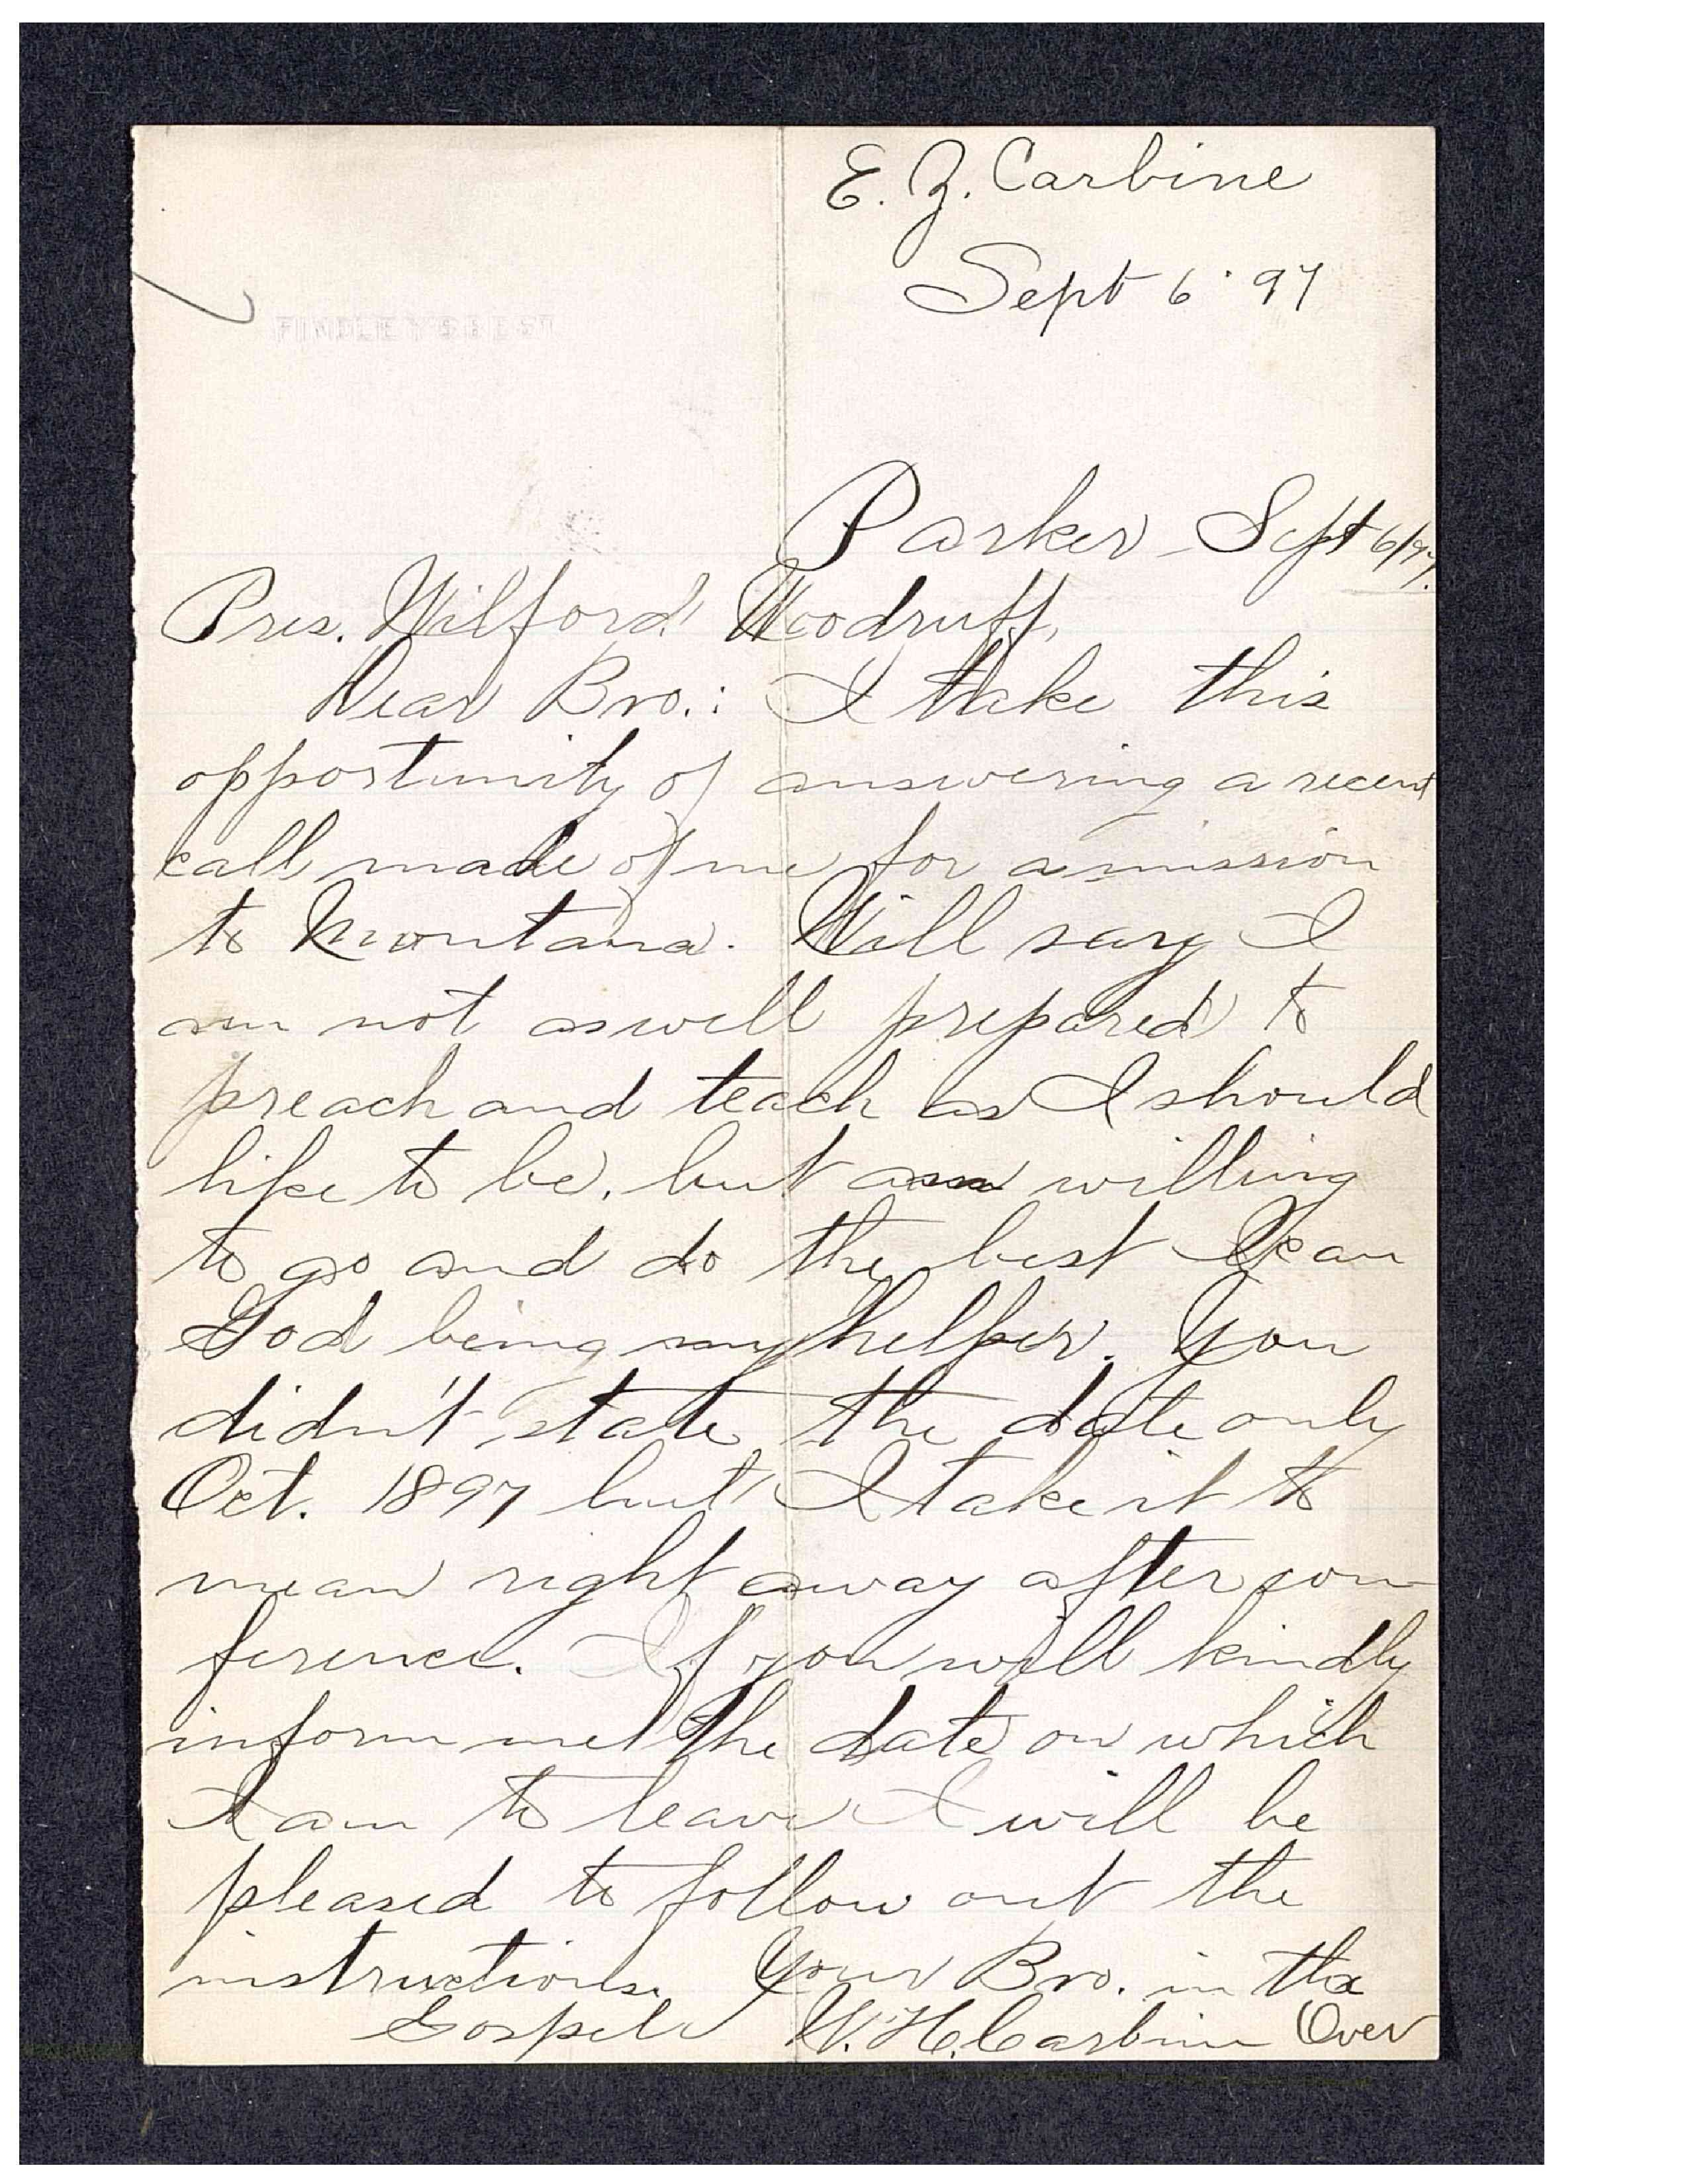 E. Z. Carbine
Sept 6 '97
FINDLEY'S BEST
Parker Sept 6/97.
Pres. Wilford Woodruff,
Dear Bro.: I take this
opportunity of answering a recent
call made of me for a mission
to Montana. Will say I
am not as well prepared to
preach and teach as I should
like to be, but am willing
to go and do the best I can
God being my helper. You
didn't state the date only
Oct. 1897 but I take it to
mean right away after con-
ference. If you will kindly
inform me the date on which
I am to leave I will be
pleased to follow out the
instructions. Your Bro. in the
Gospel W. H. Carbine (Over